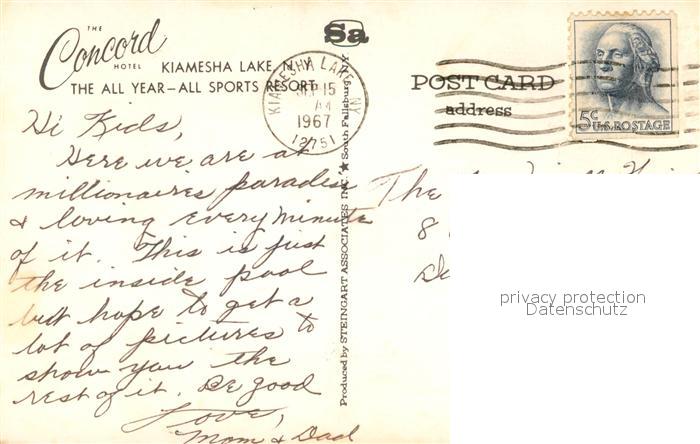 THE
Concord
HOTEL
KIAMESHA LAKE, N.Y.
THE ALL YEAR—ALL SPORTS RESORT
Sa
KIAMESHA LAKE, NY
SEP 15
AM
1967
12751
POST CARD
address
5¢ U.S. POSTAGE
Hi Kids,
Here we are at
millionaires paradise
& loving every minute
of it. This is just
the inside pool
but hope to get a
lot of pictures to
show you the
rest of it. Be good
Love,
Mom & Dad
Produced by STEINGART ASSOCIATES INC. ★ South Fallsburg, N.Y.
The
8
privacy protection
Datenschutz